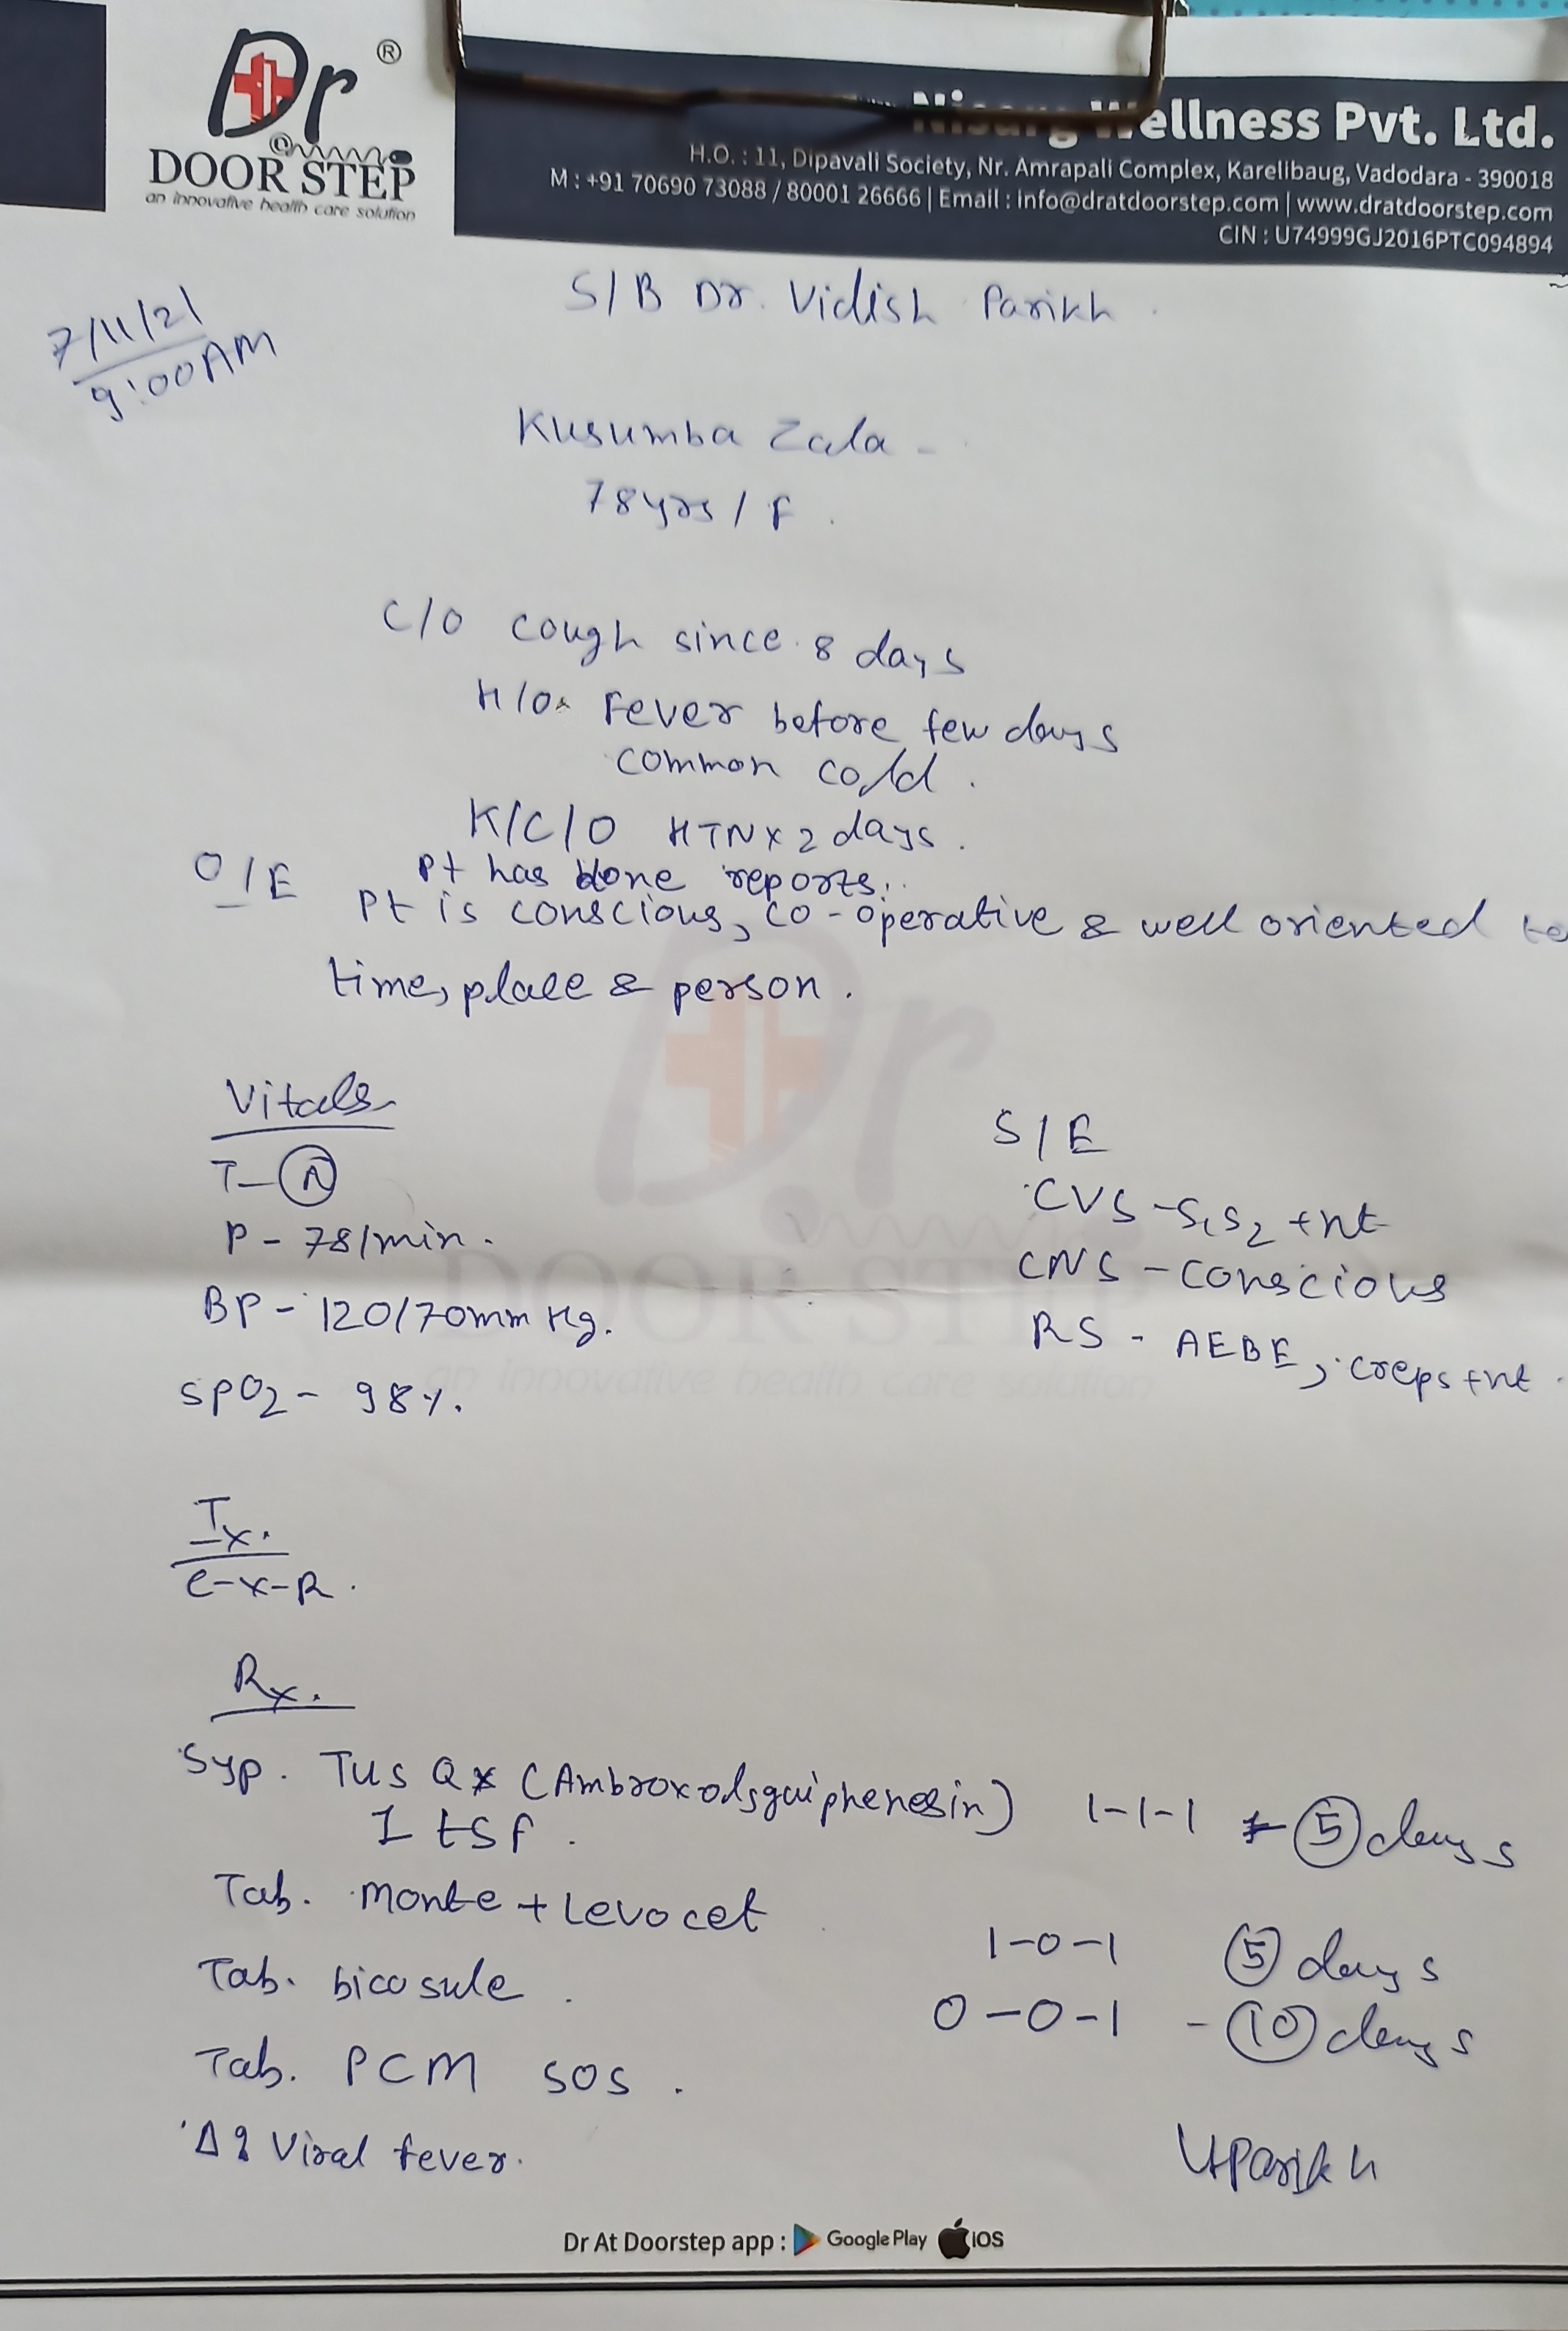 Dr ®
@
DOOR STEP
an innovative health care solution
Wellness Pvt. Ltd.
H.O. : 11, Dipavali Society, Nr. Amrapali Complex, Karelibaug, Vadodara - 390018
M : +91 70690 73088 / 80001 26666 | Email : info@dratdoorstep.com | www.dratdoorstep.com
CIN : U74999GJ2016PTC094894
7/11/21
9:00AM
S/B Dr. Vidish Parikh
Kusumba Zala -
78yrs / F
C/O cough since 8 days
H/O Fever before few days
common cold.
K/C/O HTN x 2 days.
Pt has done reports.
O/E Pt is conscious, co-operative & well oriented to
time, place & person.
Vitals
T- N
P - 78/min.
BP - 120/70mm Hg.
SPO2 - 98%.
S/E
CVS - S1S2 +nt
CNS - conscious
RS - AEBE, creps +nt.
Ix.
C-X-R.
Rx.
Syp. TUS Qx (Ambroxol, guiphenesin) 1-1-1 5 days
1 tsf.
Tab. Monte + Levocet 1-0-1 5 days
Tab. bicosule. 0-0-1 - 10 days
Tab. PCM SOS.
Δ ? Viral fever.
VParikh
Dr
DOOR STEP
an innovative health care solution
Dr At Doorstep app : Google Play iOS